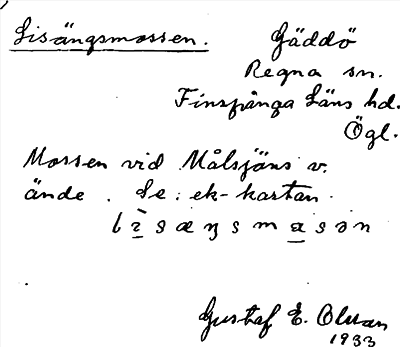 Lisängsmossen. Gäddö
Regna sn.
Finspånga Läns hd.
Ögl.
Mossen vid Målsjöns v.
ände. Se: ek-kartan.
Gustaf E. Olsson
1933